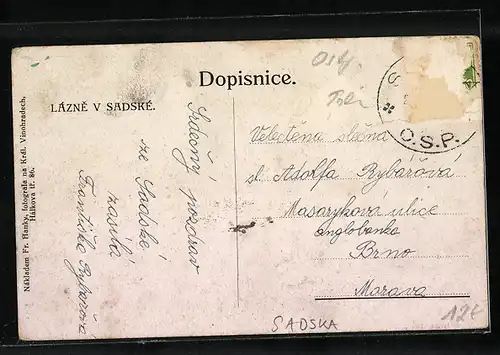 Dopisnice.
LÁZNĚ V SADSKÉ.
Nákladem Fr. Hanky, fotografa na Král. Vinohradech,
Hálkova tř. 86.
Srdečný pozdrav
ze Sadské
zasílá
Františka Rybářová
Č.S.P.
Velectěná slečna
sl. Adolfa Rybářová
Masarykova ulice
anglobanka
Brno
Morava
SADSKA
12€